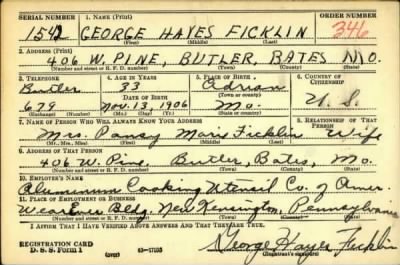 SERIAL NUMBER 1. NAME (Print) ORDER NUMBER
1542 GEORGE HAYES FICKLIN 346
(First) (Middle) (Last)
2. ADDRESS (Print)
406 W. PINE, BUTLER, BATES MO.
(Number and street or R. F. D. number) (Town) (County) (State)
3. TELEPHONE 4. AGE IN YEARS 5. PLACE OF BIRTH 6. COUNTRY OF CITIZENSHIP
Butler 33 Adrian
DATE OF BIRTH (Town or county)
679 Nov. 13, 1906 Mo. U. S.
(Exchange) (Number) (Mo.) (Day) (Yr.) (State or country)
7. NAME OF PERSON WHO WILL ALWAYS KNOW YOUR ADDRESS 8. RELATIONSHIP OF THAT PERSON
Mrs. Pansy Marie Ficklin Wife
(Mr., Mrs., Miss) (First) (Middle) (Last)
9. ADDRESS OF THAT PERSON
406 W. Pine Butler, Bates, Mo.
(Number and street or R. F. D. number) (Town) (County) (State)
10. EMPLOYER'S NAME
Aluminum Cooking Utensil Co. of Amer.
11. PLACE OF EMPLOYMENT OR BUSINESS
WearEver Bldg. New Kensington, Pennsylvania
(Number and street or R. F. D. number) (Town) (County) (State)
I AFFIRM THAT I HAVE VERIFIED ABOVE ANSWERS AND THAT THEY ARE TRUE.
George Hayes Ficklin
REGISTRATION CARD
D. S. S. Form 1 (over) 16-17105 (Registrant's signature)